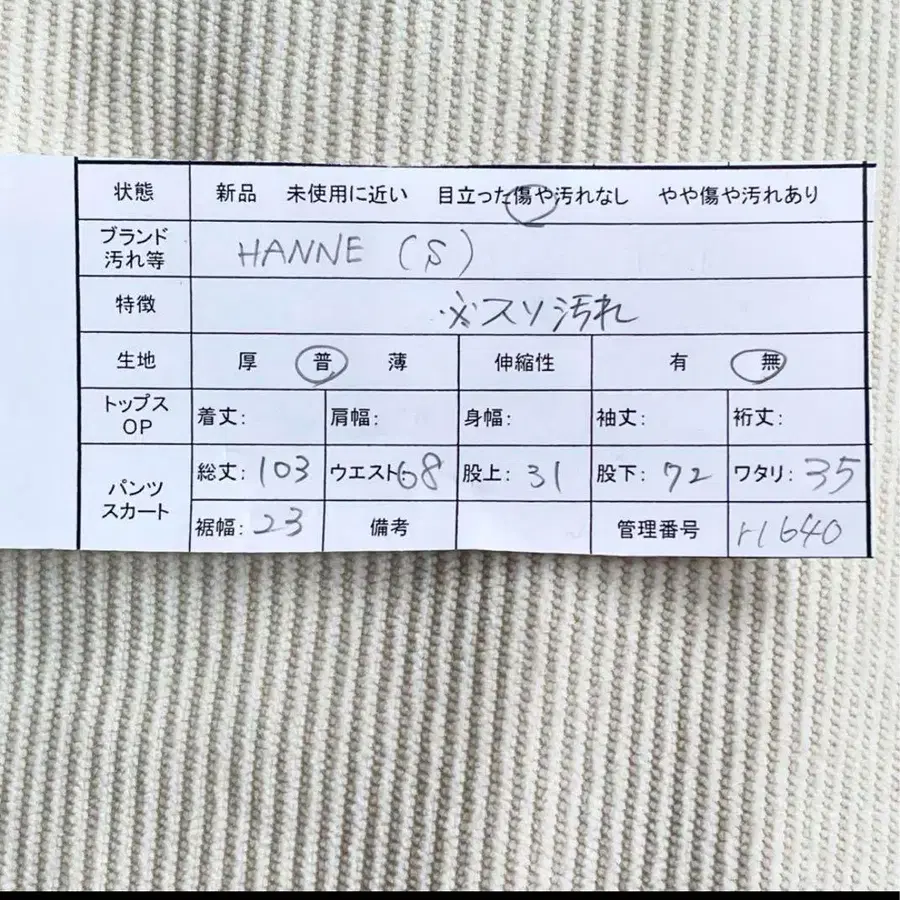 状態 新品 未使用に近い 目立った傷や汚れなし やや傷や汚れあり
ブランド
汚れ等 HANNE (S)
特徴 ※スソ汚れ
生地 厚 普 薄 伸縮性 有 無
トップス
OP 着丈: 肩幅: 身幅: 袖丈: 裄丈:
パンツ
スカート 総丈: 103 ウエスト: 68 股上: 31 股下: 72 ワタリ: 35
裾幅: 23 備考 管理番号 H640